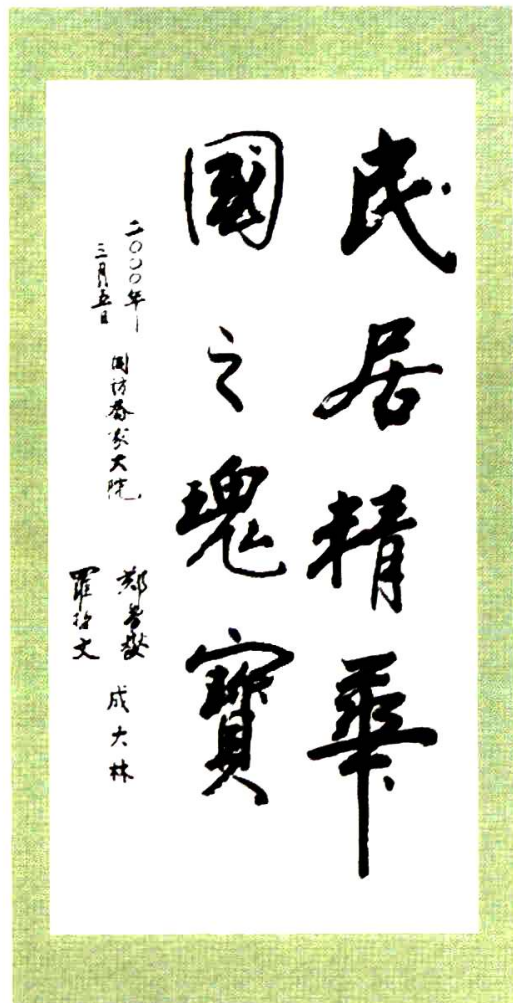 民居精華
國之瑰寶
二〇〇〇年
三月五日
回訪喬家大院
鄭孝燮 成大林
羅哲文